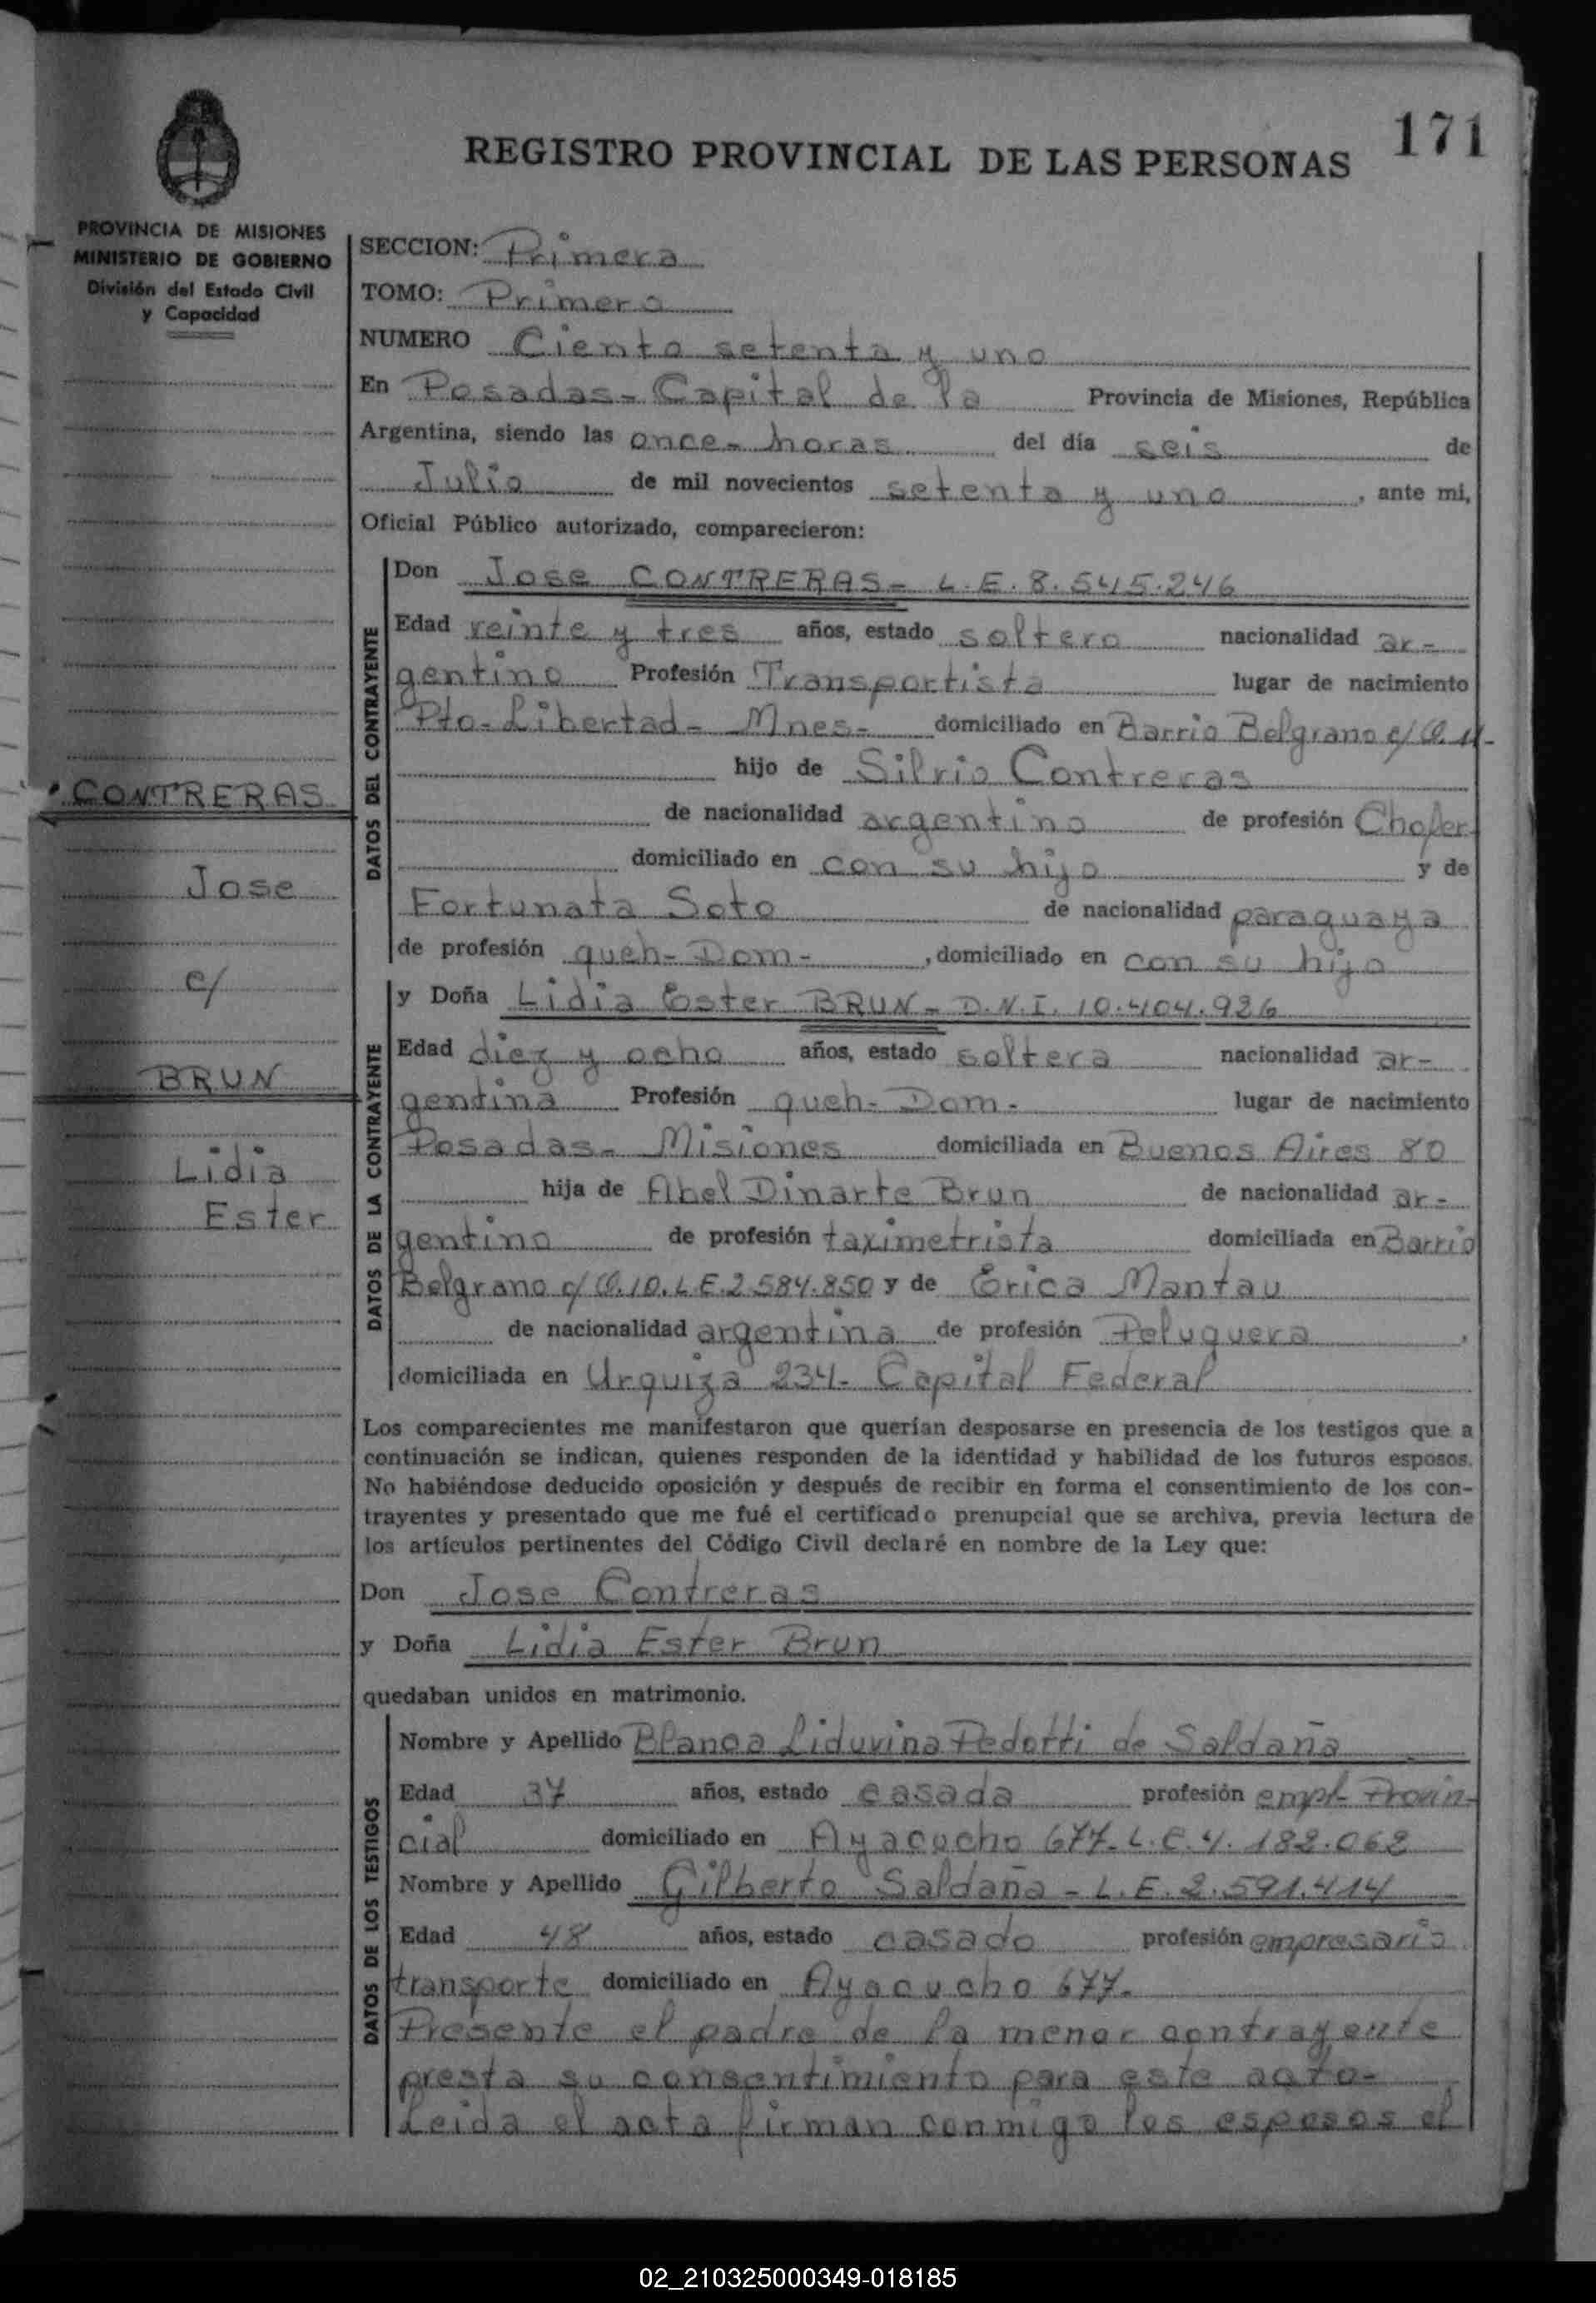 171
REGISTRO PROVINCIAL DE LAS PERSONAS
PROVINCIA DE MISIONES
MINISTERIO DE GOBIERNO
División del Estado Civil
y Capacidad
CONTRERAS
Jose
c/
BRUN
Lidia
Ester
SECCION: Primera
TOMO: Primero
NUMERO Ciento setenta y uno
En Posadas - Capital de la Provincia de Misiones, República
Argentina, siendo las once - horas del día seis de
Julio de mil novecientos setenta y uno, ante mi,
Oficial Público autorizado, comparecieron:
DATOS DEL CONTRAYENTE
Don Jose CONTRERAS - L.E. 8.545.246
Edad veinte y tres años, estado soltero nacionalidad ar-
gentino Profesión Transportista lugar de nacimiento
Pto. Libertad - Mnes - domiciliado en Barrio Belgrano c/
hijo de Silvio Contreras
de nacionalidad argentino de profesión Chofer
domiciliado en con su hijo y de
Fortunata Soto de nacionalidad paraguaya
de profesión queh - Dom -, domiciliado en con su hijo
DATOS DE LA CONTRAYENTE
y Doña Lidia Ester BRUN - D.N.I. 10.404.926
Edad diez y ocho años, estado soltera nacionalidad ar-
gentina Profesión queh - Dom - lugar de nacimiento
Posadas - Misiones domiciliada en Buenos Aires 80
hija de Abel Dinarte Brun de nacionalidad ar-
gentino de profesión taximetrista domiciliada en Barrio
Belgrano c/ L.E. 2.584.850 y de Erica Mantau
de nacionalidad argentina de profesión Peluquera,
domiciliada en Urquiza 234 - Capital Federal
Los comparecientes me manifestaron que querían desposarse en presencia de los testigos que a
continuación se indican, quienes responden de la identidad y habilidad de los futuros esposos.
No habiéndose deducido oposición y después de recibir en forma el consentimiento de los con-
trayentes y presentado que me fué el certificado prenupcial que se archiva, previa lectura de
los artículos pertinentes del Código Civil declaré en nombre de la Ley que:
Don Jose Contreras
y Doña Lidia Ester Brun
quedaban unidos en matrimonio.
DATOS DE LOS TESTIGOS
Nombre y Apellido Blanca Liduvina Pedotti de Saldaña
Edad 37 años, estado casada profesión empl - Provin-
cial domiciliado en Ayacucho 677 - L.C. 4.182.062
Nombre y Apellido Gilberto Saldaña - L.E. 2.591.414
Edad 48 años, estado casado profesión empresario
transporte domiciliado en Ayacucho 677.
Presente el padre de la menor contrayente
presta su consentimiento para este acto -
Leida el acta firman conmigo los esposos el
02_210325000349-018185